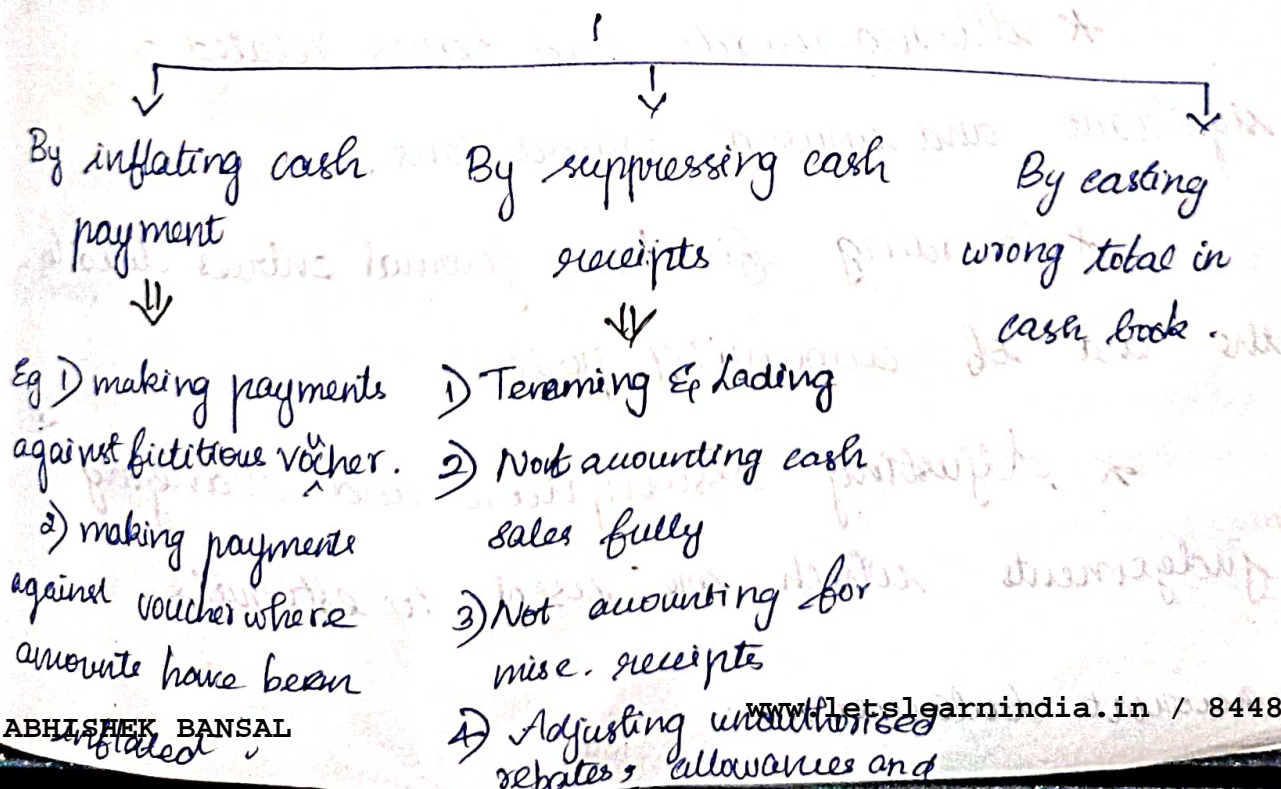 By inflating cash
payment
Eg 1) making payments
against fictitious voucher.
2) making payments
against voucher where
amounts have been
inflated
By suppressing cash
receipts
1) Teeming & Lading
2) Not accounting cash
sales fully
3) Not accounting for
misc. receipts
4) Adjusting unauthorised
rebates, allowances and
By casting
wrong total in
cash book.
ABHISHEK BANSAL
www.letslearnindia.in / 8448